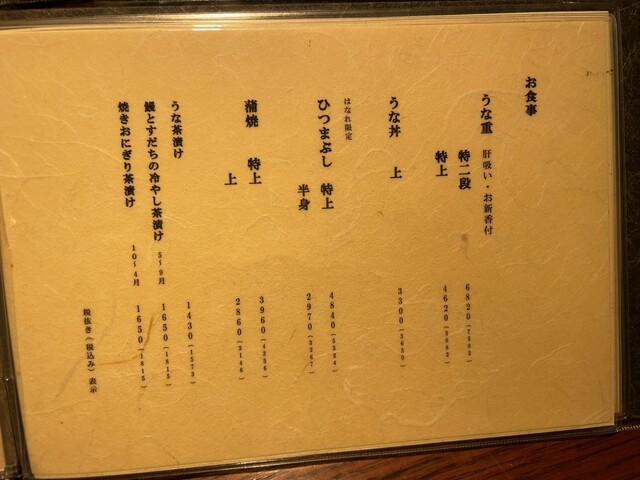 お食事
うな重 肝吸い・お新香付
特二段 6820(7502)
特上 4620(5082)
うな丼 上 3300(3630)
はなれ限定
ひつまぶし 特上 4840(5324)
半身 2970(3267)
蒲焼 特上 3960(4356)
上 2860(3146)
うな茶漬け 1430(1573)
鰻とすだちの冷やし茶漬け 5〜9月 1650(1815)
焼きおにぎり茶漬け 10〜4月 1650(1815)
税抜き(税込み)表示